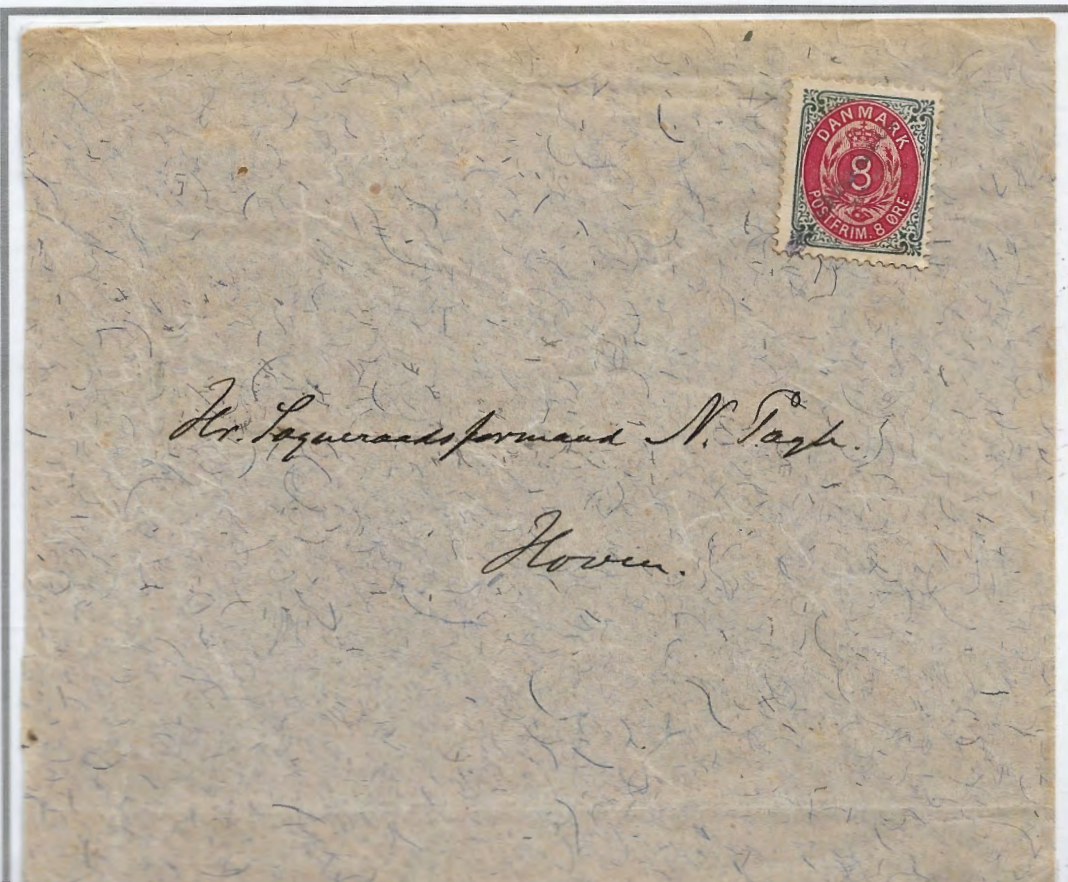 DANMARK
8
POSTFRIM. 8 ØRE
Hr. Sogneraadsformand N.
Hoven.